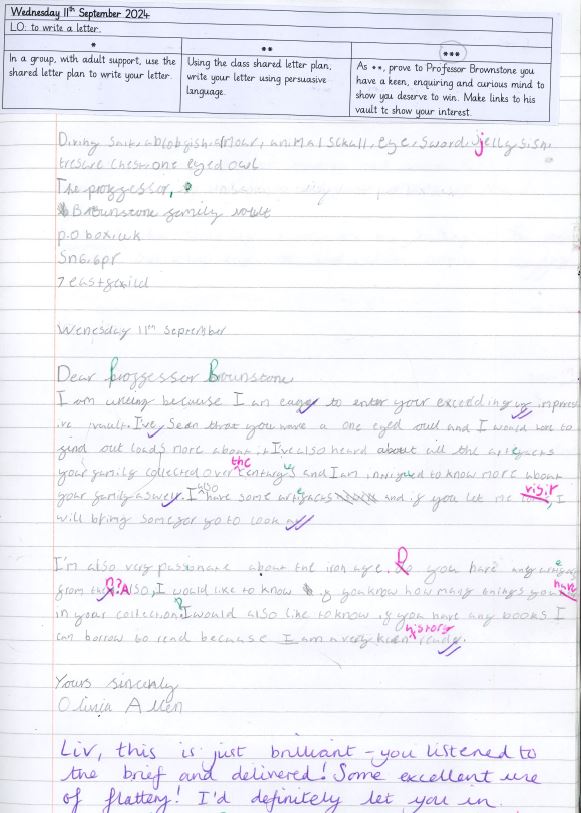 Wednesday 11th September 2024
LO: to write a letter.
*
In a group, with adult support, use the
shared letter plan to write your letter.
**
Using the class shared letter plan,
write your letter using persuasive
language.
***
As **, prove to Professor Brownstone you
have a keen, enquiring and curious mind to
show you deserve to win. Make links to his
vault to show your interest.
Diving suit, armour, animal scull, eye, sword, jellyfish
tresure chest, one eyed owl
The proffessor,
Brounstone family
p.o box.uk
Sn6.6pr
7 eastfeild
Wenesday 11th September
Dear proffessor Brounstone
I am because I am eager to enter your exceedingly impress
ive vault. I've Seen that you have a one eyed owl and I would love to
find out loads more about it. I've also heard about all the artefacts
your family collected over the centurys and I am intrigued to know more about
your family aswell. I also have some artefacts and if you let me visit, I
will bring some for you to look at.
I'm also very passionate about the iron age. Do you have any artefacts
from then? Also, I would like to know if you know how many things you have
in your collection. I would also like to know if you have any books I
can borrow to read because I am a very keen history reader.
Yours sincerly
Olivia Allen
Liv, this is just brilliant - you listened to
the brief and delivered! Some excellent use
of flattery! I'd definitely let you in.